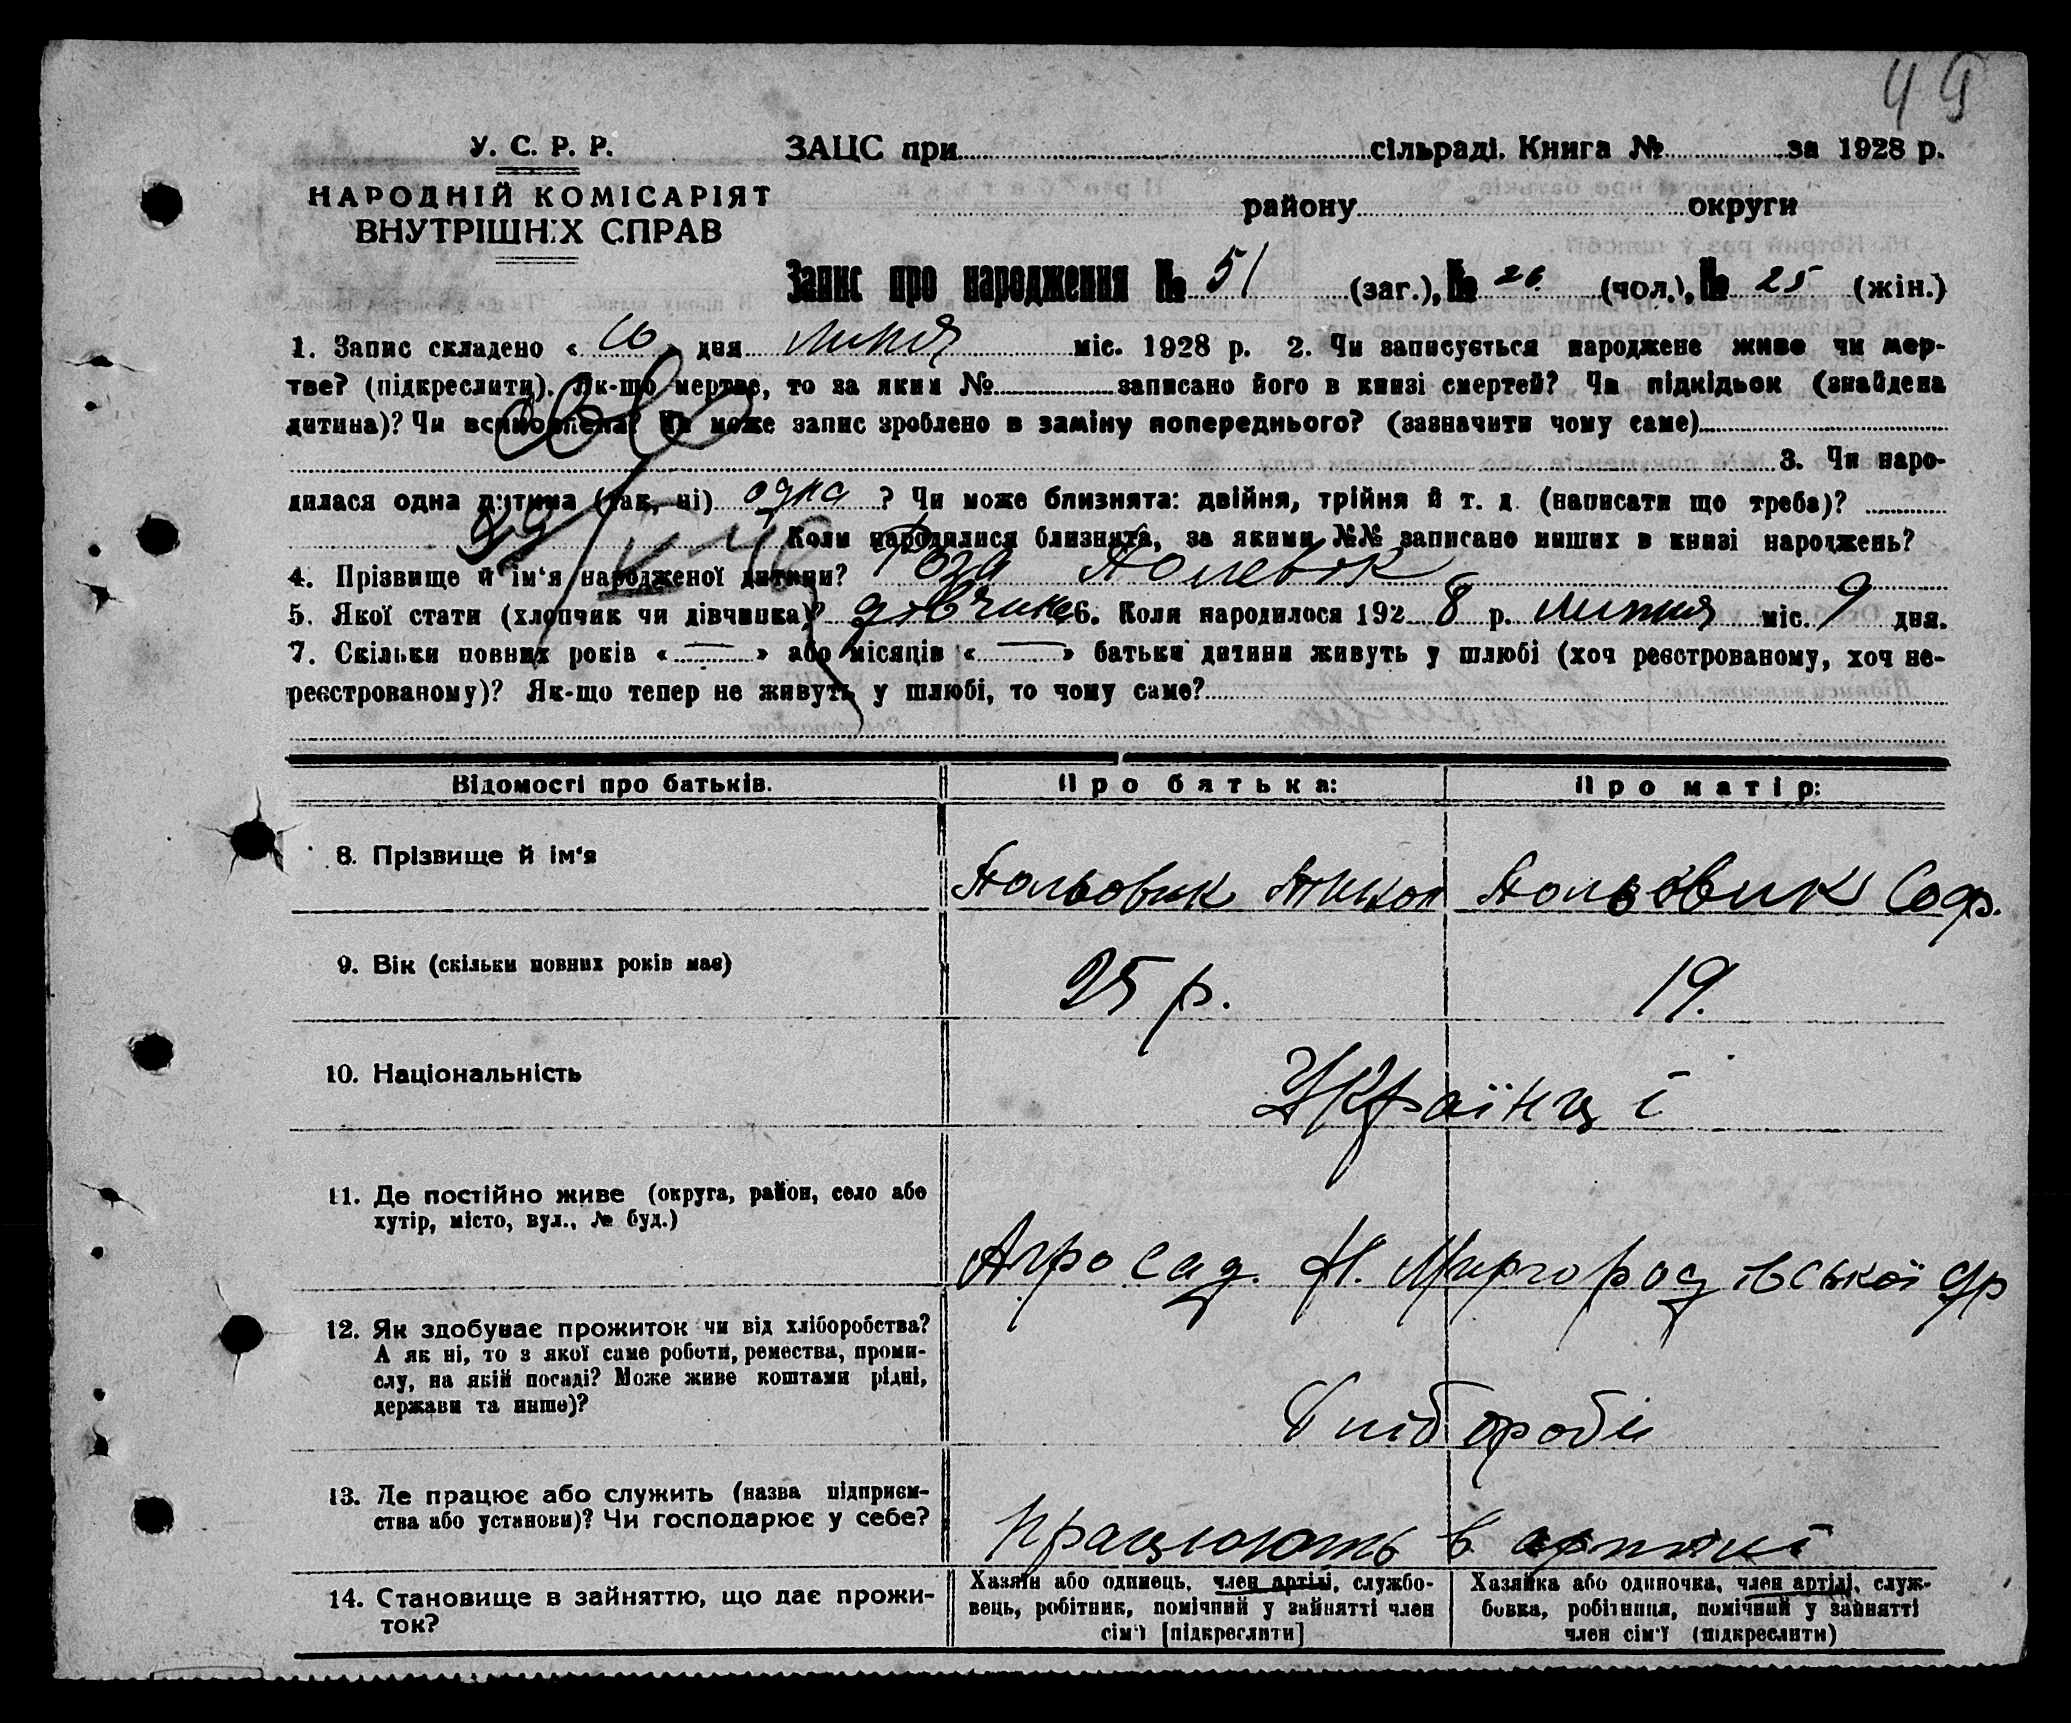 49
У. С. Р. Р.
ЗАЦС при сільраді. Книга № за 1928 р.
НАРОДНІЙ КОМІСАРІЯТ
ВНУТРІШНІХ СПРАВ
району округи
Запис про народження № 51 (заг.), № 26. (чол.), № 25 (жін.)
1. Запис складено « 10 » дня липня міс. 1928 р. 2. Чи записується народжене живе чи мер-
тве? (підкреслити). Як-що мертве, то за яким № записано його в книзі смертей? Чи підкідьок (знайдена
дитина)? Чи всиновлена? Чи може запис зроблено в заміну попереднього? (зазначити чому саме)
3. Чи наро-
дилася одна дитина (так, ні) одна ? Чи може близнята: двійня, трійня й т. д. (написати що треба)?
Коли народилися близнята, за якими №№ записано инших в книзі народжень?
4. Прізвище й ім'я народженої дитини? Роза
5. Якої стати (хлопчик чи дівчинка)? дівчинка 6. Коли народилося 1928 р. липня міс. 9 дня.
7. Скільки повних років « — » або місяців « — » батьки дитини живуть у шлюбі (хоч реєстрованому, хоч не-
реєстрованому)? Як-що тепер не живуть у шлюбі, то чому саме?
Відомості про батьків. Про батька: Про матір:
8. Прізвище й ім'я Польовик Польовик Соф.
9. Вік (скільки повних років має) 25 р. 19.
10. Національність Українці
11. Де постійно живе (округа, район, село або
хутір, місто, вул., № буд.)
Агро сад. Н. Миргородівської
12. Як здобуває прожиток чи від хліборобства?
А як ні, то з якої саме роботи, ремества, проми-
слу, на якій посаді? Може живе коштами рідні,
держави та инше)?
13. Де працює або служить (назва підприєм-
ства або установи)? Чи господарює у себе?
працюють в артілі
14. Становище в зайняттю, що дає прожи-
ток?
Хазяїн або одинець, член артілі, службо-
вець, робітник, помічний у зайнятті член
сім'ї [підкреслити]
Хазяйка або одиночка, член артілі, служ-
бовка, робітниця, помічний у зайнятті
член сім'ї (підкреслити)